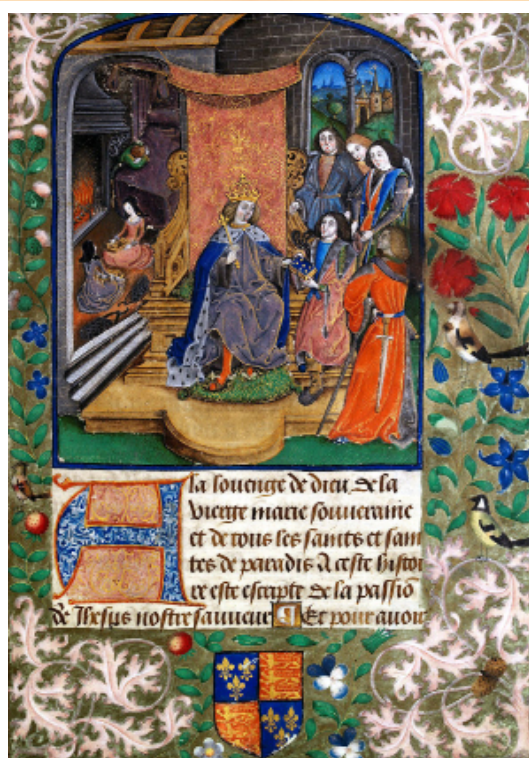 A la louenge de dieu de la
vierge marie souveraine
et de tous ses saints et sain
tes de paradis A ceste histoi
re este escripte de la passiō
de Ihesus nostre sauueur Et pour auoir